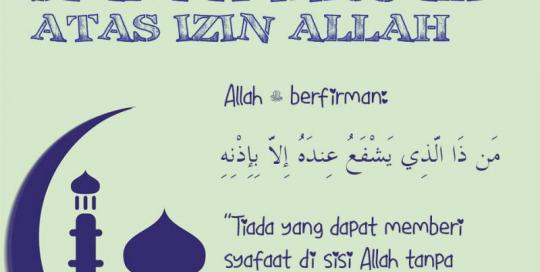 ATAS IZIN ALLAH
Allah ﷻ berfirman:
مَن ذَا الَّذِي يَشْفَعُ عِندَهُ إِلاَّ بِإِذْنِهِ
"Tiada yang dapat memberi
syafaat di sisi Allah tanpa